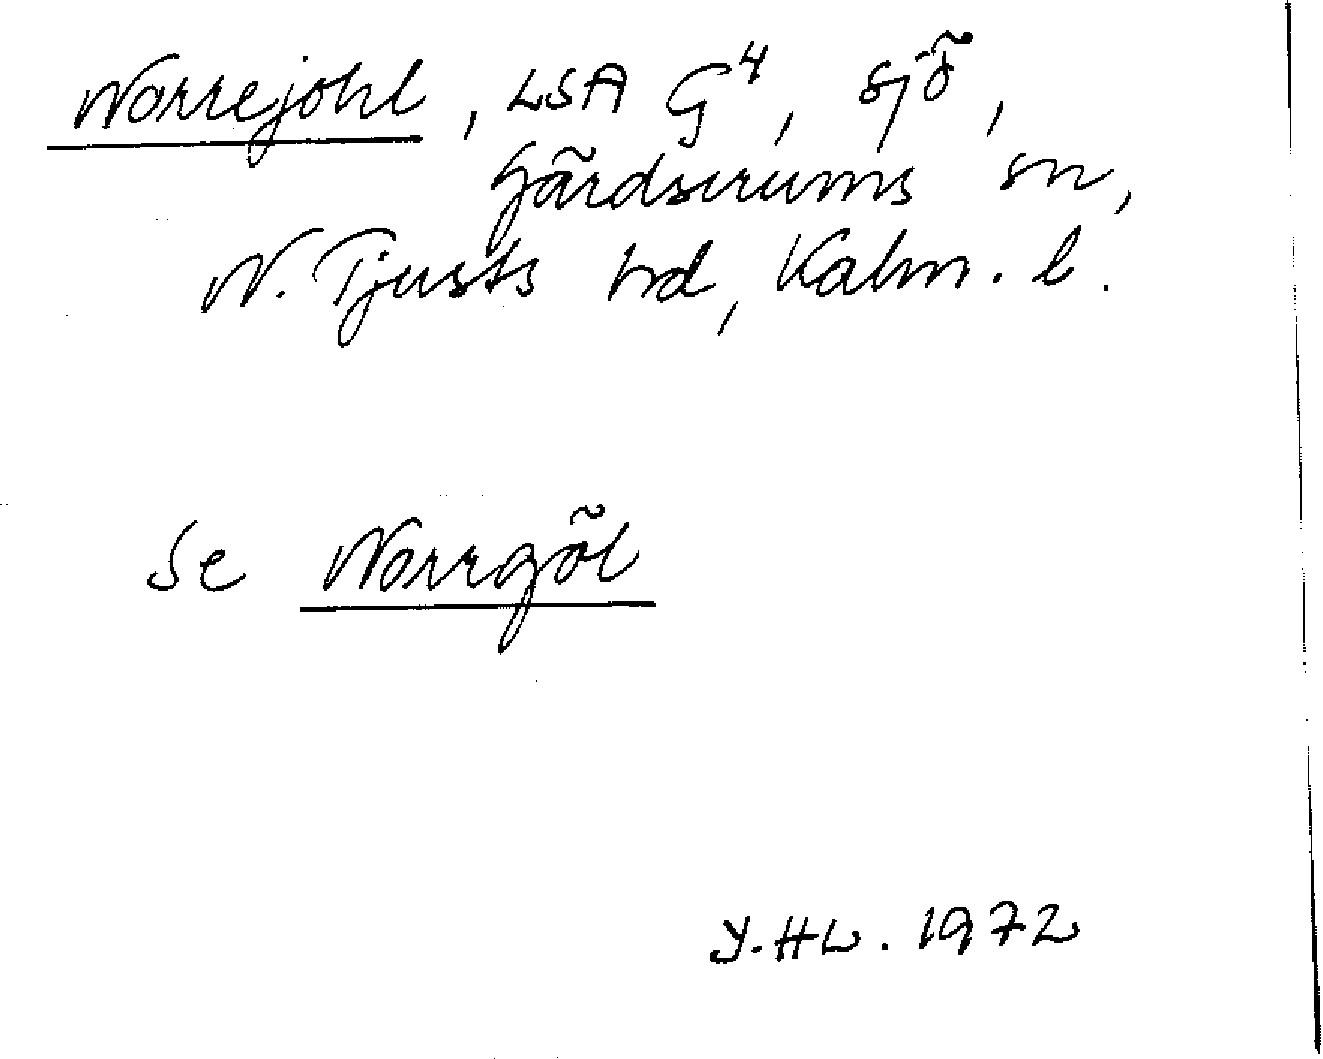 Norrejohl, LSA G4, sjö,
Gärdserums sn,
N. Tjusts hd, Kalm. l.
Se Norrgöl
Y.HL. 1972